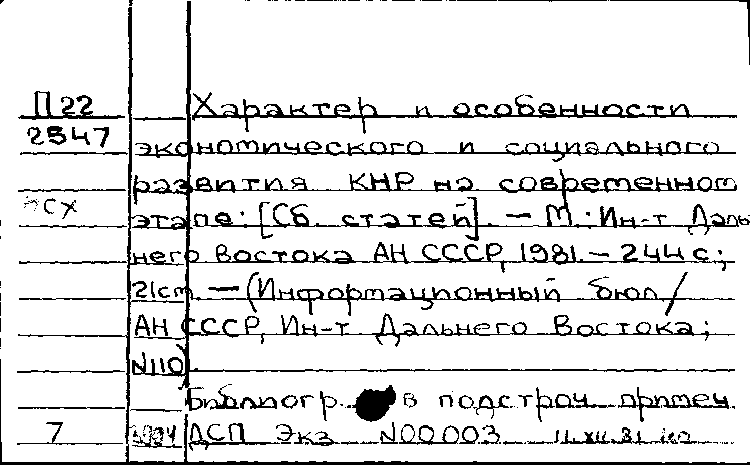 П22 Характер и особенности
2547 экономического и социального
развития КНР на современном
СХ этапе: [Сб. статей]. — М.: Ин-т Даль
него Востока АН СССР, 1981. — 244 с;
21cm. — (Информационный бюл./
АН СССР, Ин-т Дальнего Востока;
N110).
Библиогр. в подстроч. примеч
7 ДСП Экз N00003 11.XII.81